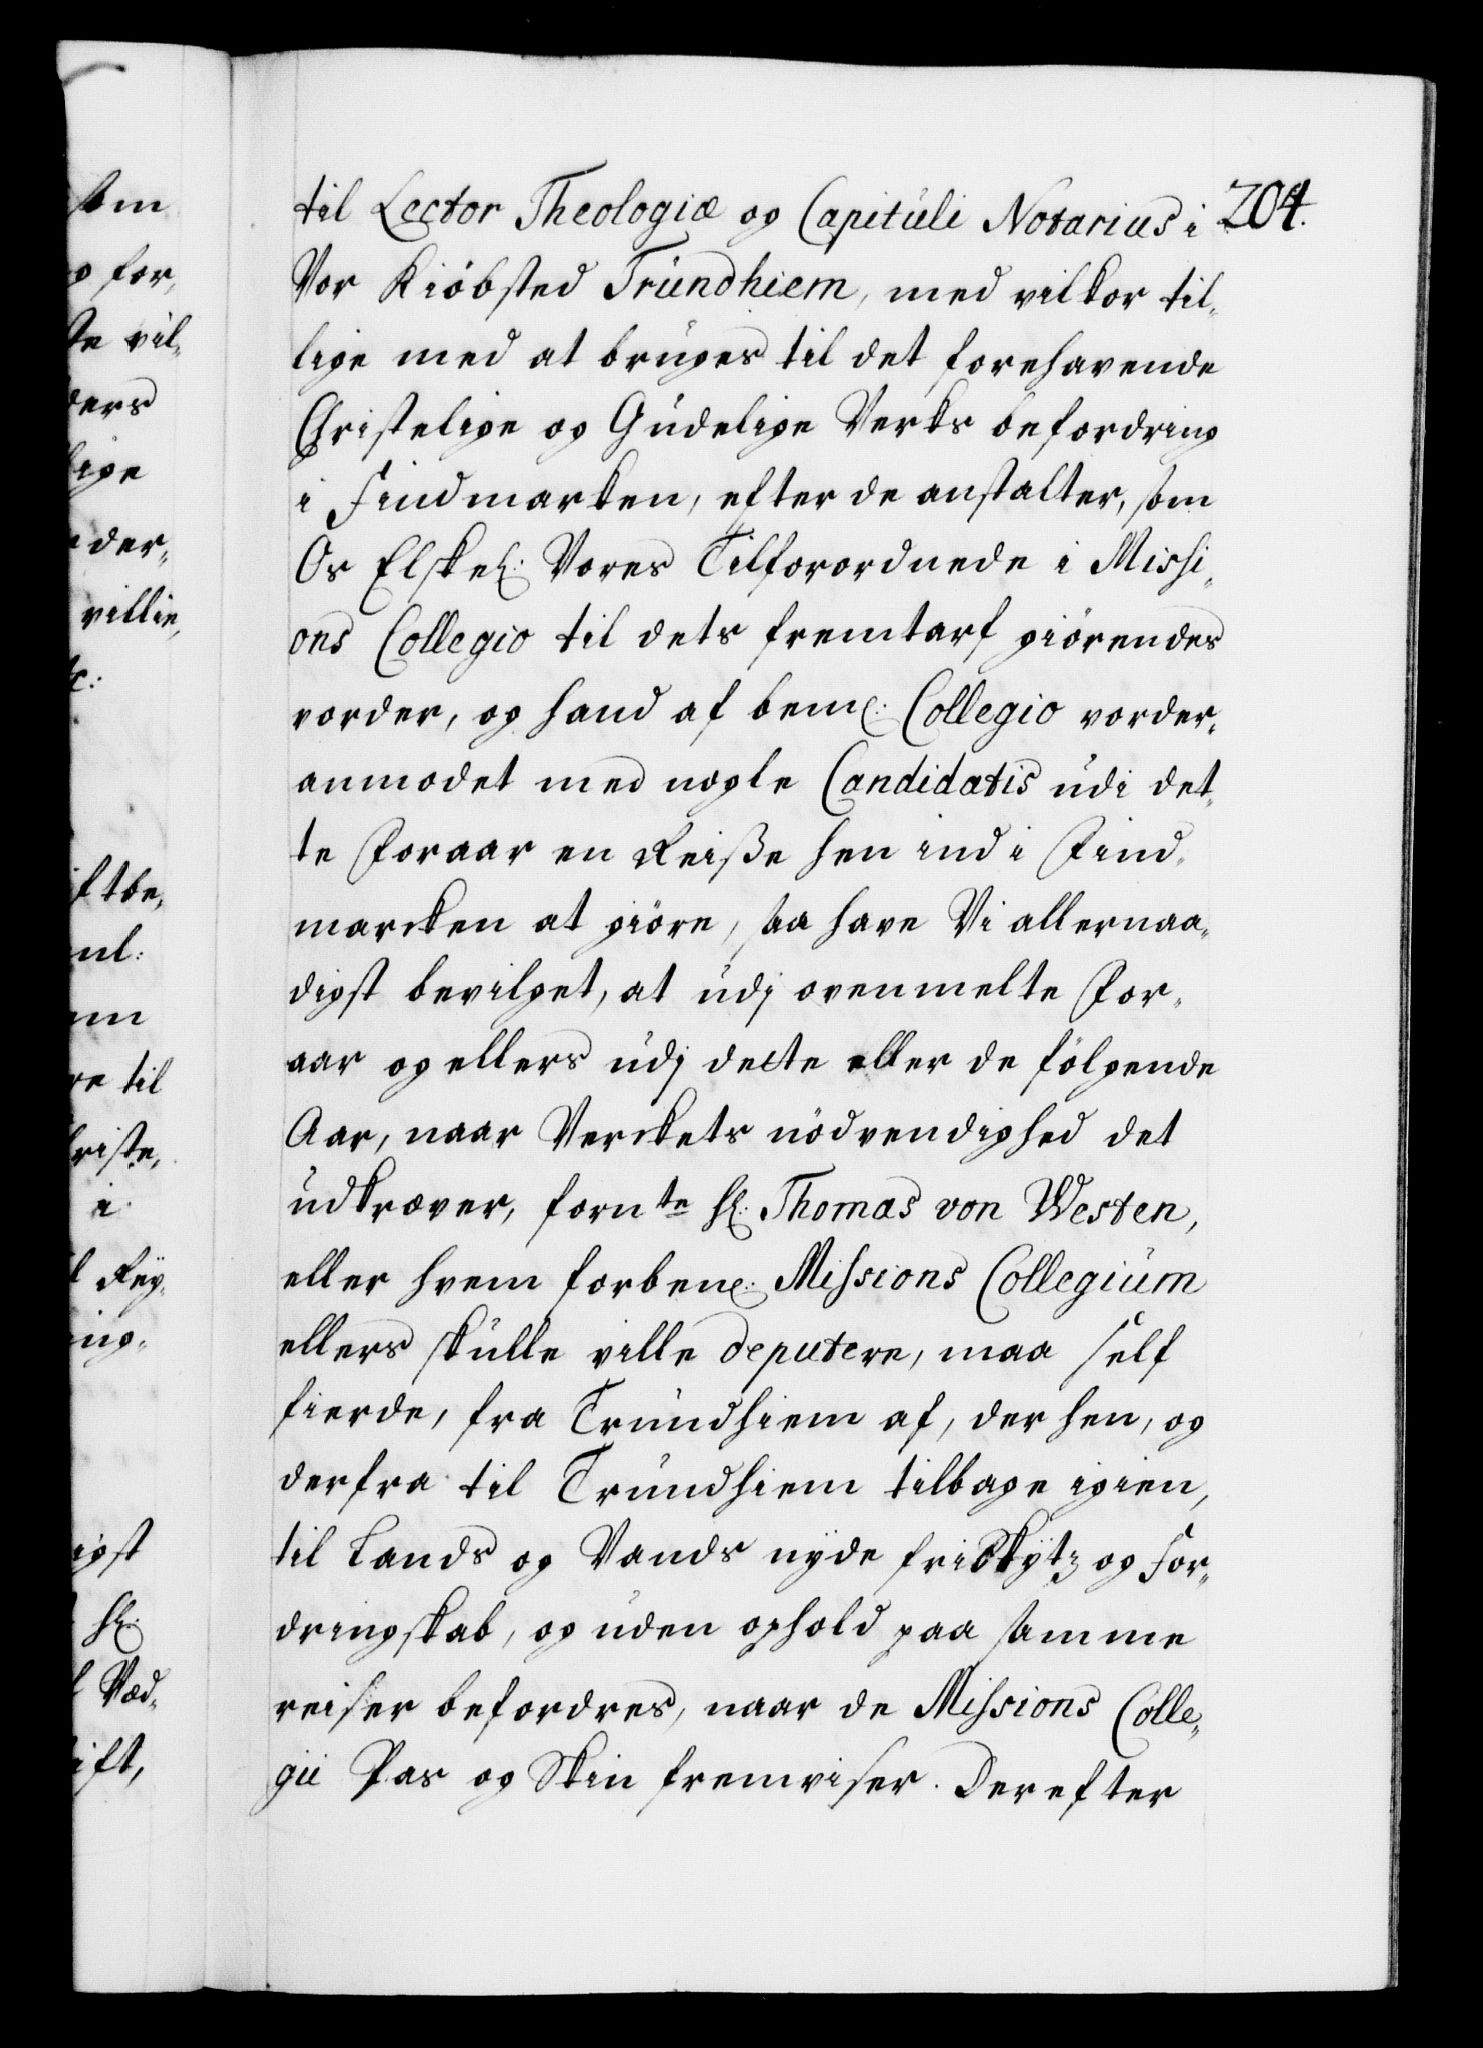 til Lector Theologiæ og Capituli Notarius i 204.
Vor Kiöbsted Trundhiem, med vilkor til-
lige med at bruges til det forehavende
Christelige og Gudelige Verks befordring
i Findmarken, efter de anstalter, som
Os Elskel: Vores Tilforordnede i Missi-
ons Collegio til dets fremtarf giörendes
vorder, og hand af bem: Collegio vorder
anmodet med nogle Candidatis udi det-
te Foraar en Reiße hen ind i Find-
marcken at giöre, saa have Vi allernaa-
digst bevilget, at udj ovenmelte For-
aar og ellers udj dette eller de fölgende
Aar, naar Verckets nödvendighed det
udkræver, fornte Hr: Thomas von Westen,
eller hvem forben: Missions Collegium
ellers skulle ville deputere, maa self
fierde, fra Trundhiem af, der hen, og
derfra til Trundhiem tilbage igien,
til Lands og Vands nyde fri Skytz og For-
dringskab, og uden ophold paa samme
reiser befordres, naar de Missions Colle-
gii Pas og Skin fremviser. Derefter
som
for-
te vil-
ders
lige
der-
villie,
&c:
ftbe-
nl:
re til
riste-
i
Reg-
ing-
igst
Hr:
Væd-
ift,